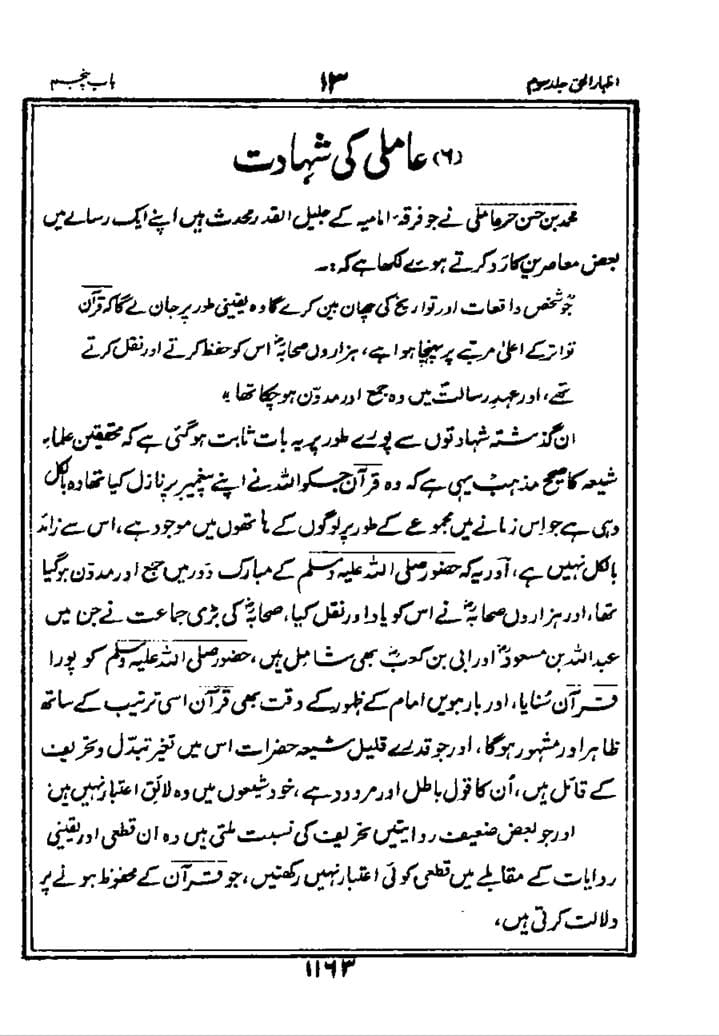 اظہار الحق جلد سوم ۱۳ باب پنجم
(۶) عاملی کی شہادت
محمد بن حسن حر عاملی نے جو فرقہ امامیہ کے جلیل القدر محدث ہیں اپنے ایک رسالے میں
بعض معاصرین کا رد کرتے ہوئے لکھا ہے کہ:۔
جو شخص واقعات اور تواریخ کی چھان بین کرے گا وہ یقینی طور پر جان لے گا کہ قرآن
تواتر کے اعلیٰ مرتبے پر پہنچا ہوا ہے، ہزاروں صحابہؓ اس کو حفظ کرتے اور نقل کرتے
تھے، اور عہدِ رسالت میں وہ جمع اور مدوّن ہوچکا تھا ؛
ان گذشتہ شہادتوں سے پورے طور پر یہ بات ثابت ہوگئی ہے کہ محققین علماء
شیعہ کا صحیح مذہب یہی ہے کہ وہ قرآن جسکو اللہ نے اپنے پیغمبر پر نازل کیا تھا وہ بالکل
وہی ہے جو اس زمانے میں مجموعے کے طور پر لوگوں کے ہاتھوں میں موجود ہے، اس سے زائد
بالکل نہیں ہے، اور یہ کہ حضور صلی اللہ علیہ وسلم کے مبارک دَور میں جمع اور مدوّن ہوگیا
تھا، اور ہزاروں صحابہؓ نے اس کو یاد اور نقل کیا، صحابہؓ کی بڑی جماعت نے جن میں
عبداللہ بن مسعودؓ اور ابی بن کعبؓ بھی شامل ہیں، حضور صلی اللہ علیہ وسلم کو پورا
قرآن سُنایا، اور بارہویں امام کے ظہور کے وقت بھی قرآن اسی ترتیب کے ساتھ
ظاہر اور مشہور ہوگا، اور جو قدرے قلیل شیعہ حضرات اس میں تغیر تبدّل و تحریف
کے قائل ہیں، اُن کا قول باطل اور مردود ہے، خود شیعوں میں وہ لائق اعتبار نہیں ہیں؛
اور جو بعض ضعیف روایتیں تحریف کی نسبت ملتی ہیں وہ ان قطعی اور یقینی
روایات کے مقابلے میں قطعی کوئی اعتبار نہیں رکھتیں، جو قرآن کے محفوظ ہونے پر
دلالت کرتی ہیں،
۱۱۶۳